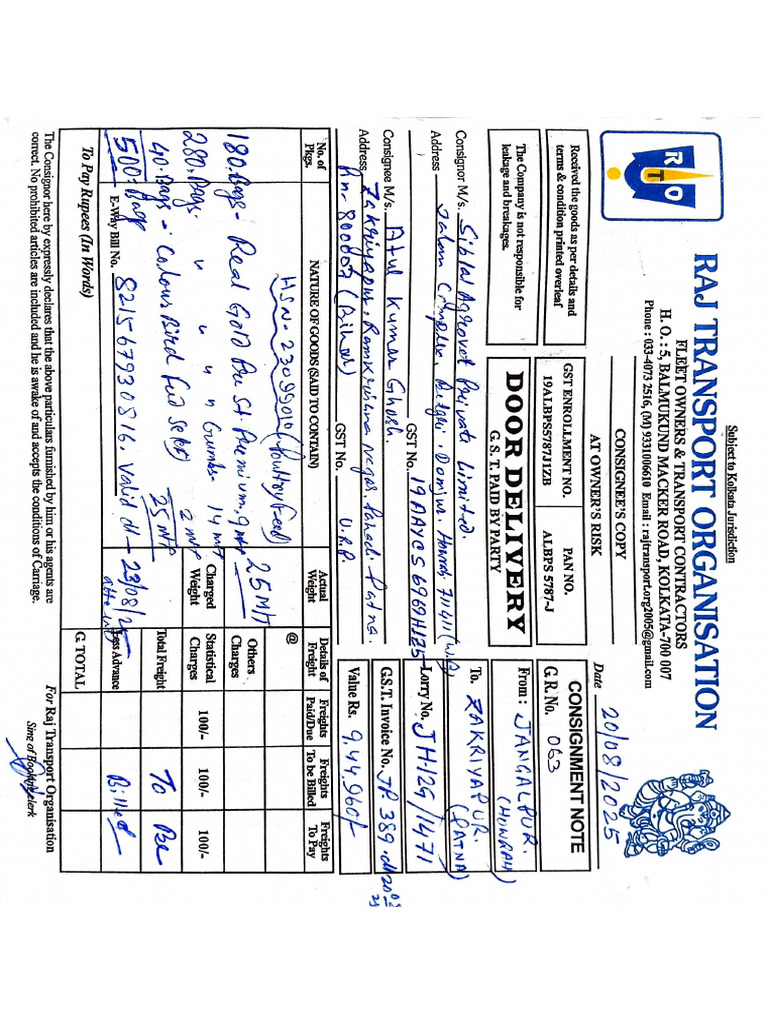 Subject to Kolkata Jurisdiction
RTO
RAJ TRANSPORT ORGANISATION
FLEET OWNERS & TRANSPORT CONTRACTORS
H. O. : 5, BALMUKUND MACKER ROAD, KOLKATA-700 007
Phone : 033-4073 2516, (M) 9331006610 Email : rajtransport.org2005@gmail.com
Received the goods as per details and
terms & condition printed overleaf
The Company is not responsible for
leakage and breakages.
CONSIGNEE'S COPY
AT OWNER'S RISK
GST ENROLLMENT NO.
19ALBPS5787J1ZB
PAN NO.
ALBPS 5787-J
DOOR DELIVERY
G. S. T. PAID BY PARTY
Date 20/08/2025
CONSIGNMENT NOTE
G.R. No. 063
From : JANGALPUR.
(HOWRAH)
To. ZAKRIYAPUR.
(PATNA)
Consignor M/s. Sibtal Agrovet Private Limited.
Address Jalan Complex, Domjur, Howrah, 711411 (W.B)
GST No. 19AAYCS6969H1Z5
Lorry No. JH.12G/1471
Consignee M/s. Atul Kumar Ghosh.
G.S.T. Invoice No. JP 389. dt 20
Address Zakriyapur, Ramkrishna Nagar, Patna.
(Bihar) GST No. U.R.P.
Value Rs. 9,44,960/-
No. of
Pkgs.
NATURE OF GOODS (SAID TO CONTAIN)
Actual
Weight
Details of
Freight
Freights
Paid/Due
Freights
To be Billed
Freights
To Pay
HSN-23099010 (Poultry Feed)
@
180.Bags- Real Gold Premium, 9 25 MT
Others
Charges
280.Bags 14 MT
Charged
Weight
Statistical
Charges
100/-
100/-
100/-
40.Bags- Bird Feed 2
Total Freight To Be
500.Bags 25 MT
E-Way Bill No. 821567930816. Valid dt- 23/08/25
Less Advance Billed
To Pay Rupees (In Words)
G. TOTAL
The Consignor here by expressly declares that the above particulars furnished by him or his agents are
correct. No prohibited articles are included and he is awake of and accepts the conditions of Carriage.
For Raj Transport Organisation
Sing of Booking clerk